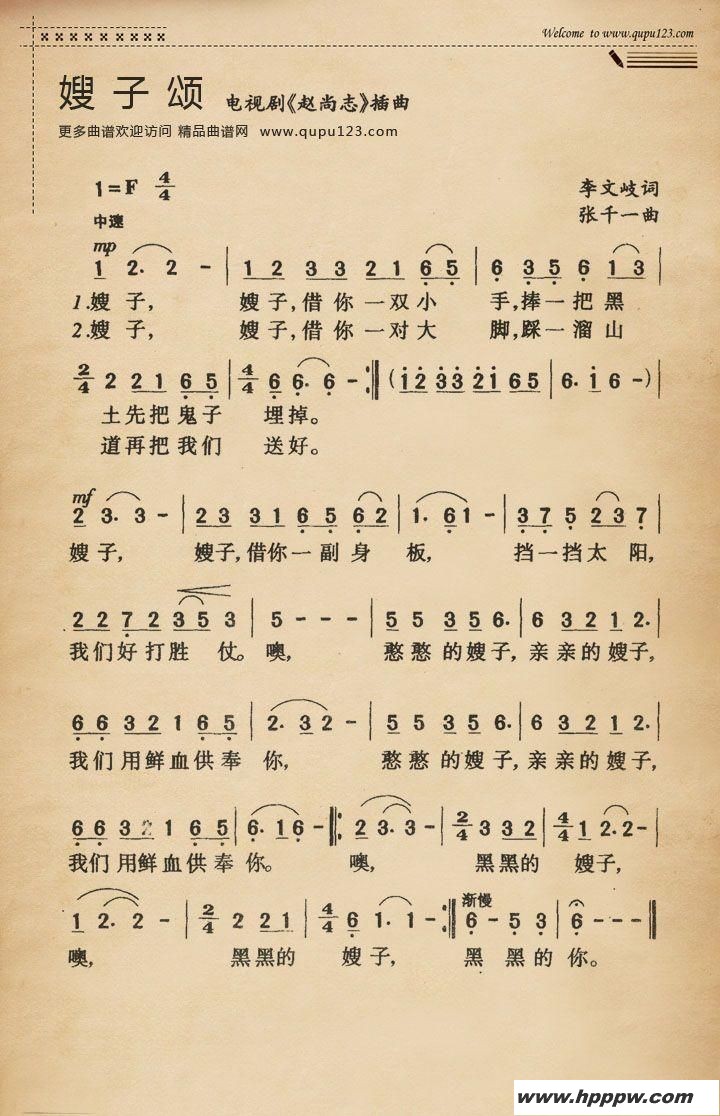 Welcome to www.qupu123.com
嫂子颂 电视剧《赵尚志》插曲
更多曲谱欢迎访问 精品曲谱网 www.qupu123.com
1=F 4/4 李文岐词
中速 张千一曲
mp
1 2. 2 - | 1 2 3 3 2 1 6 5 | 6 3 5 6 1 3 |
1.嫂子, 嫂子,借你一双小 手,捧一把黑
2.嫂子, 嫂子,借你一对大 脚,踩一溜山
2/4 2 2 1 6 5 | 4/4 6 6. 6 - :‖ (1 2 3 3 2 1 6 5 | 6. 1 6 -) |
土先把鬼子 埋掉。
道再把我们 送好。
mf
2 3. 3 - | 2 3 3 1 6 5 6 2 | 1. 6 1 - | 3 7 5 2 3 7 |
嫂子, 嫂子,借你一副身 板, 挡一挡太阳,
2 2 7 2 3 5 3 | 5 - - - | 5 5 3 5 6. | 6 3 2 1 2. |
我们好打胜 仗。噢, 憨憨的嫂子,亲亲的嫂子,
6 6 3 2 1 6 5 | 2. 3 2 - | 5 5 3 5 6. | 6 3 2 1 2. |
我们用鲜血供奉 你, 憨憨的嫂子,亲亲的嫂子,
6 6 3 2 1 6 5 | 6. 1 6 - ‖: 2 3. 3 - | 2/4 3 3 2 | 4/4 1 2. 2 - |
我们用鲜血供奉 你。 噢, 黑黑的 嫂子,
渐慢
1 2. 2 - | 2/4 2 2 1 | 4/4 6 1. 1 - :‖ 6 - 5 3 | 6 - - - ‖
噢, 黑黑的 嫂子, 黑 黑的 你。
www.hpppw.com